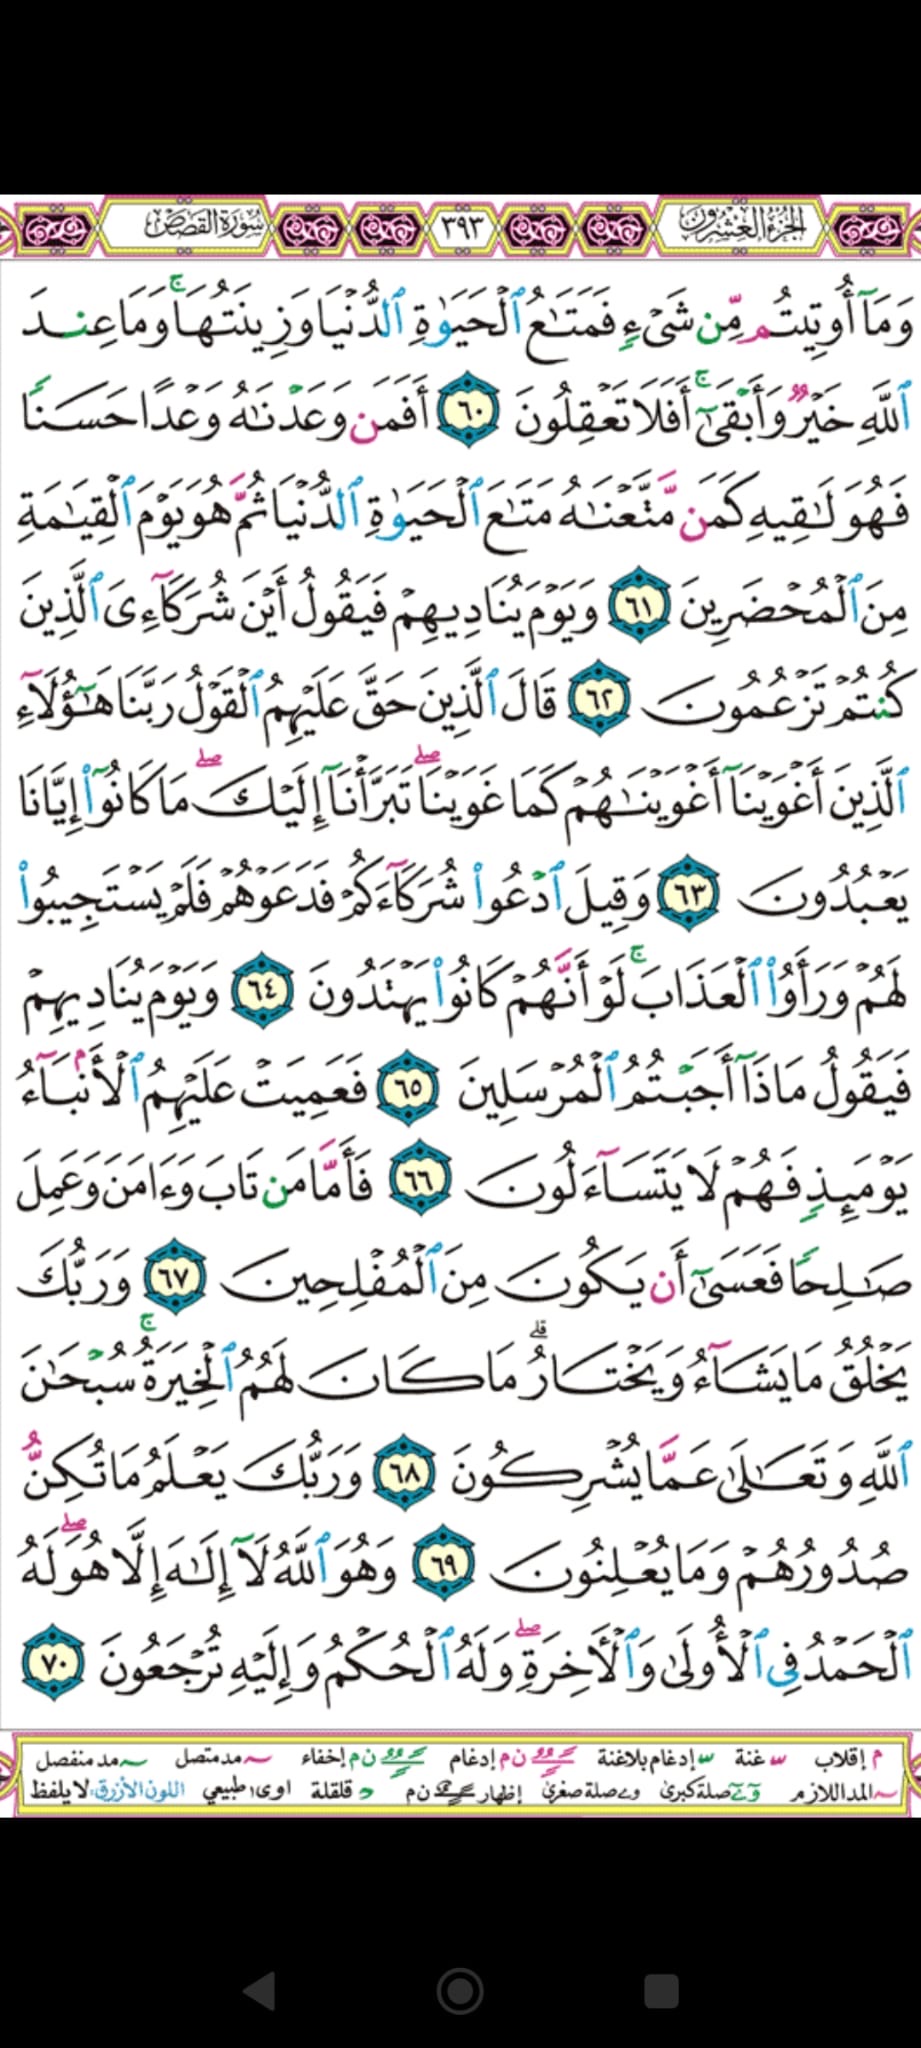 الجزء العشرون ٣٩٣ سورة القصص
وَمَآ أُوتِيتُم مِّن شَىْءٍ فَمَتَـٰعُ ٱلْحَيَوٰةِ ٱلدُّنْيَا وَزِينَتُهَا ۚ وَمَا عِندَ
ٱللَّهِ خَيْرٌ وَأَبْقَىٰٓ ۚ أَفَلَا تَعْقِلُونَ ٦٠ أَفَمَن وَعَدْنَـٰهُ وَعْدًا حَسَنًا
فَهُوَ لَـٰقِيهِ كَمَن مَّتَّعْنَـٰهُ مَتَـٰعَ ٱلْحَيَوٰةِ ٱلدُّنْيَا ثُمَّ هُوَ يَوْمَ ٱلْقِيَـٰمَةِ
مِنَ ٱلْمُحْضَرِينَ ٦١ وَيَوْمَ يُنَادِيهِمْ فَيَقُولُ أَيْنَ شُرَكَآءِىَ ٱلَّذِينَ
كُنتُمْ تَزْعُمُونَ ٦٢ قَالَ ٱلَّذِينَ حَقَّ عَلَيْهِمُ ٱلْقَوْلُ رَبَّنَا هَـٰٓؤُلَآءِ
ٱلَّذِينَ أَغْوَيْنَآ أَغْوَيْنَـٰهُمْ كَمَا غَوَيْنَا ۖ تَبَرَّأْنَآ إِلَيْكَ ۖ مَا كَانُوٓا۟ إِيَّانَا
يَعْبُدُونَ ٦٣ وَقِيلَ ٱدْعُوا۟ شُرَكَآءَكُمْ فَدَعَوْهُمْ فَلَمْ يَسْتَجِيبُوا۟
لَهُمْ وَرَأَوُا۟ ٱلْعَذَابَ ۚ لَوْ أَنَّهُمْ كَانُوا۟ يَهْتَدُونَ ٦٤ وَيَوْمَ يُنَادِيهِمْ
فَيَقُولُ مَاذَآ أَجَبْتُمُ ٱلْمُرْسَلِينَ ٦٥ فَعَمِيَتْ عَلَيْهِمُ ٱلْأَنۢبَآءُ
يَوْمَئِذٍ فَهُمْ لَا يَتَسَآءَلُونَ ٦٦ فَأَمَّا مَن تَابَ وَءَامَنَ وَعَمِلَ
صَـٰلِحًا فَعَسَىٰٓ أَن يَكُونَ مِنَ ٱلْمُفْلِحِينَ ٦٧ وَرَبُّكَ
يَخْلُقُ مَا يَشَآءُ وَيَخْتَارُ ۗ مَا كَانَ لَهُمُ ٱلْخِيَرَةُ ۚ سُبْحَـٰنَ
ٱللَّهِ وَتَعَـٰلَىٰ عَمَّا يُشْرِكُونَ ٦٨ وَرَبُّكَ يَعْلَمُ مَا تُكِنُّ
صُدُورُهُمْ وَمَا يُعْلِنُونَ ٦٩ وَهُوَ ٱللَّهُ لَآ إِلَـٰهَ إِلَّا هُوَ ۖ لَهُ
ٱلْحَمْدُ فِى ٱلْأُولَىٰ وَٱلْـَٔاخِرَةِ ۖ وَلَهُ ٱلْحُكْمُ وَإِلَيْهِ تُرْجَعُونَ ٧٠
م إقلاب غنة إدغام بلاغنة ن م إدغام ن م إخفاء مد متصل مد منفصل
المد اللازم صلة كبرى صلة صغرى إظهار ن م قلقلة اوى طبيعي اللون الأزرق: لا يلفظ